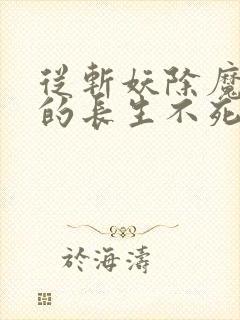 從斬妖除魔
的長生不死
於海濤